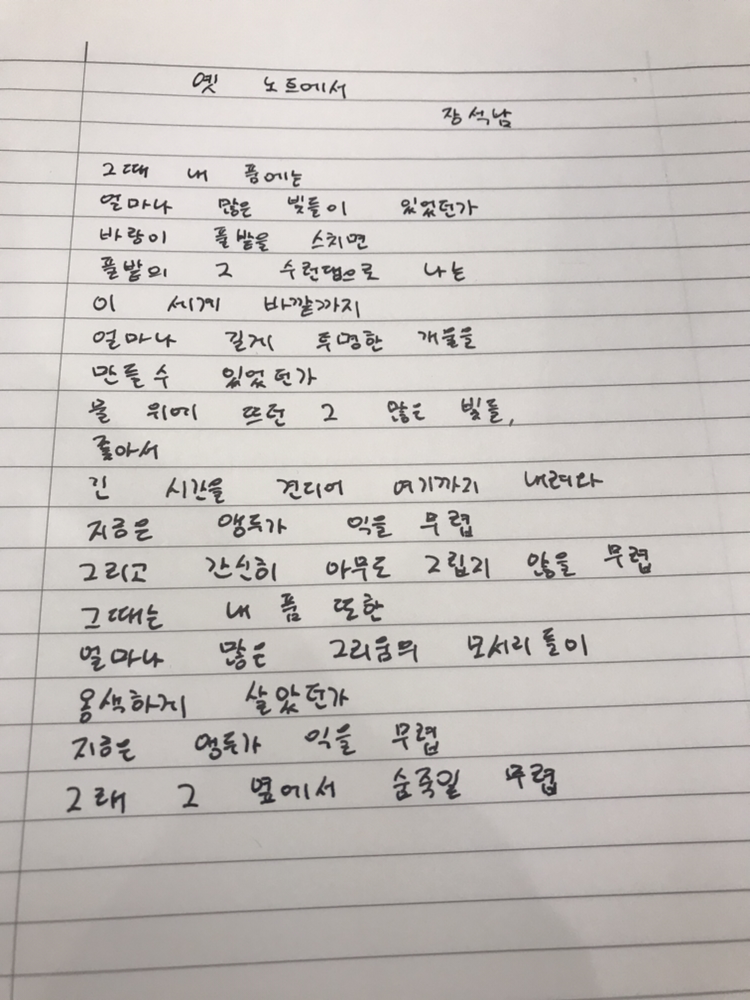 옛 노트에서
장석남
그때 내 품에는
얼마나 많은 빛들이 있었던가
바람이 풀밭을 스치면
풀밭의 그 수런댐으로 나는
이 세계 바깥까지
얼마나 길게 투명한 개울을
만들 수 있었던가
물 위에 뜨던 그 많은 빛들,
좇아서
긴 시간을 견디어 여기까지 내려와
지금은 앵두가 익을 무렵
그리고 간신히 아무도 그립지 않을 무렵
그때는 내 품 또한
얼마나 많은 그리움의 모서리들이
옹색하게 살았던가
지금은 앵두가 익을 무렵
그래 그 옆에서 숨죽일 무렵